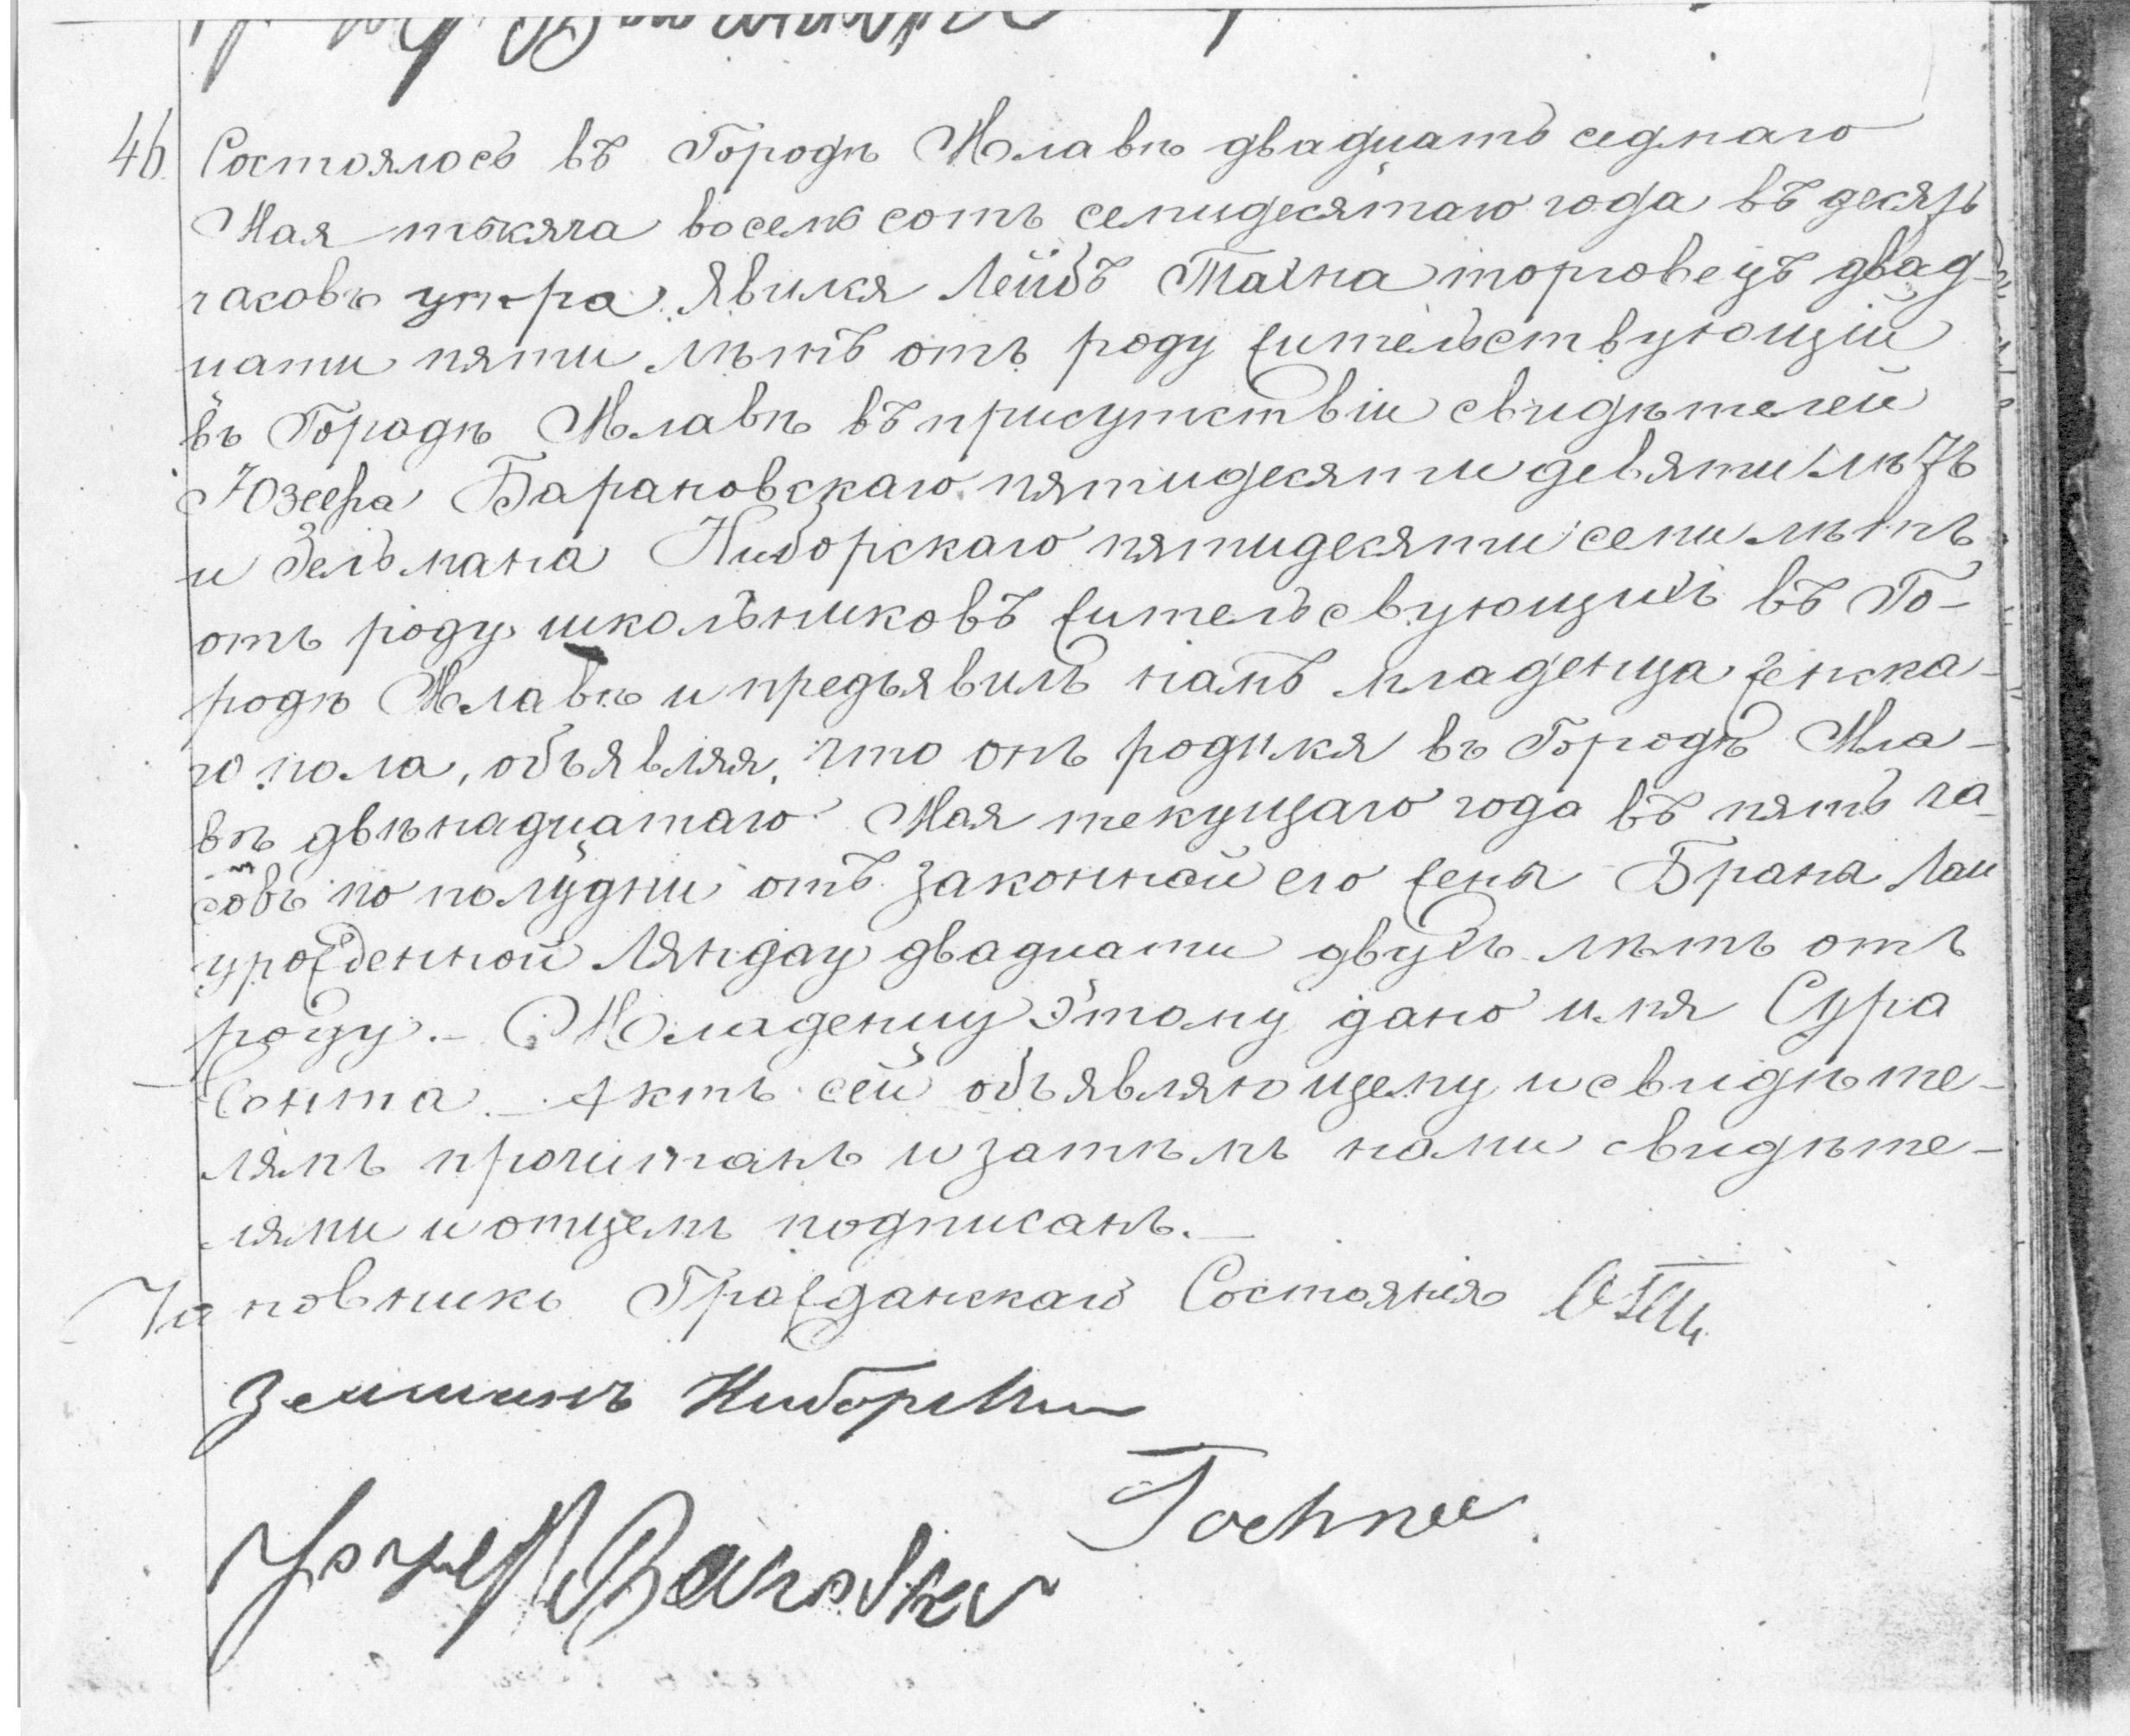 46. Состоялось въ Городѣ Млавѣ двадцать седмаго
Мая тысяча восемь сотъ семидесятаго года въ десять
часовъ утра. Явился Лейбъ Тахна торговецъ двад-
цати пяти лѣтъ отъ роду жительствующій
въ Городѣ Млавѣ въ присутствіи свидѣтелей
Юзефа Барановскаго пятидесяти девяти лѣтъ
и Зельмана Ниборскаго пятидесяти семи лѣтъ
отъ роду школьниковъ жительсвующихъ въ Го-
родѣ Млавѣ и предъявилъ намъ младенца женска-
го пола, объявляя, что онъ родился въ Городѣ Мла-
вѣ двѣнадцатаго Мая текущаго года въ пять ча-
совъ по полудни отъ законной его жены Брана Лаи
урожденной Ляндау двадцати двухъ лѣтъ отъ
роду. – Младенцу этому дано имя Сура
Ента. – Актъ сей объявляющему и свидѣте-
лямъ прочитанъ и затѣмъ нами свидѣте-
лями и отцемъ подписанъ. –
Чиновникъ Гражданскаго Состоянія
Зельманъ Ниборски
Tochna
Jozef Baranoski